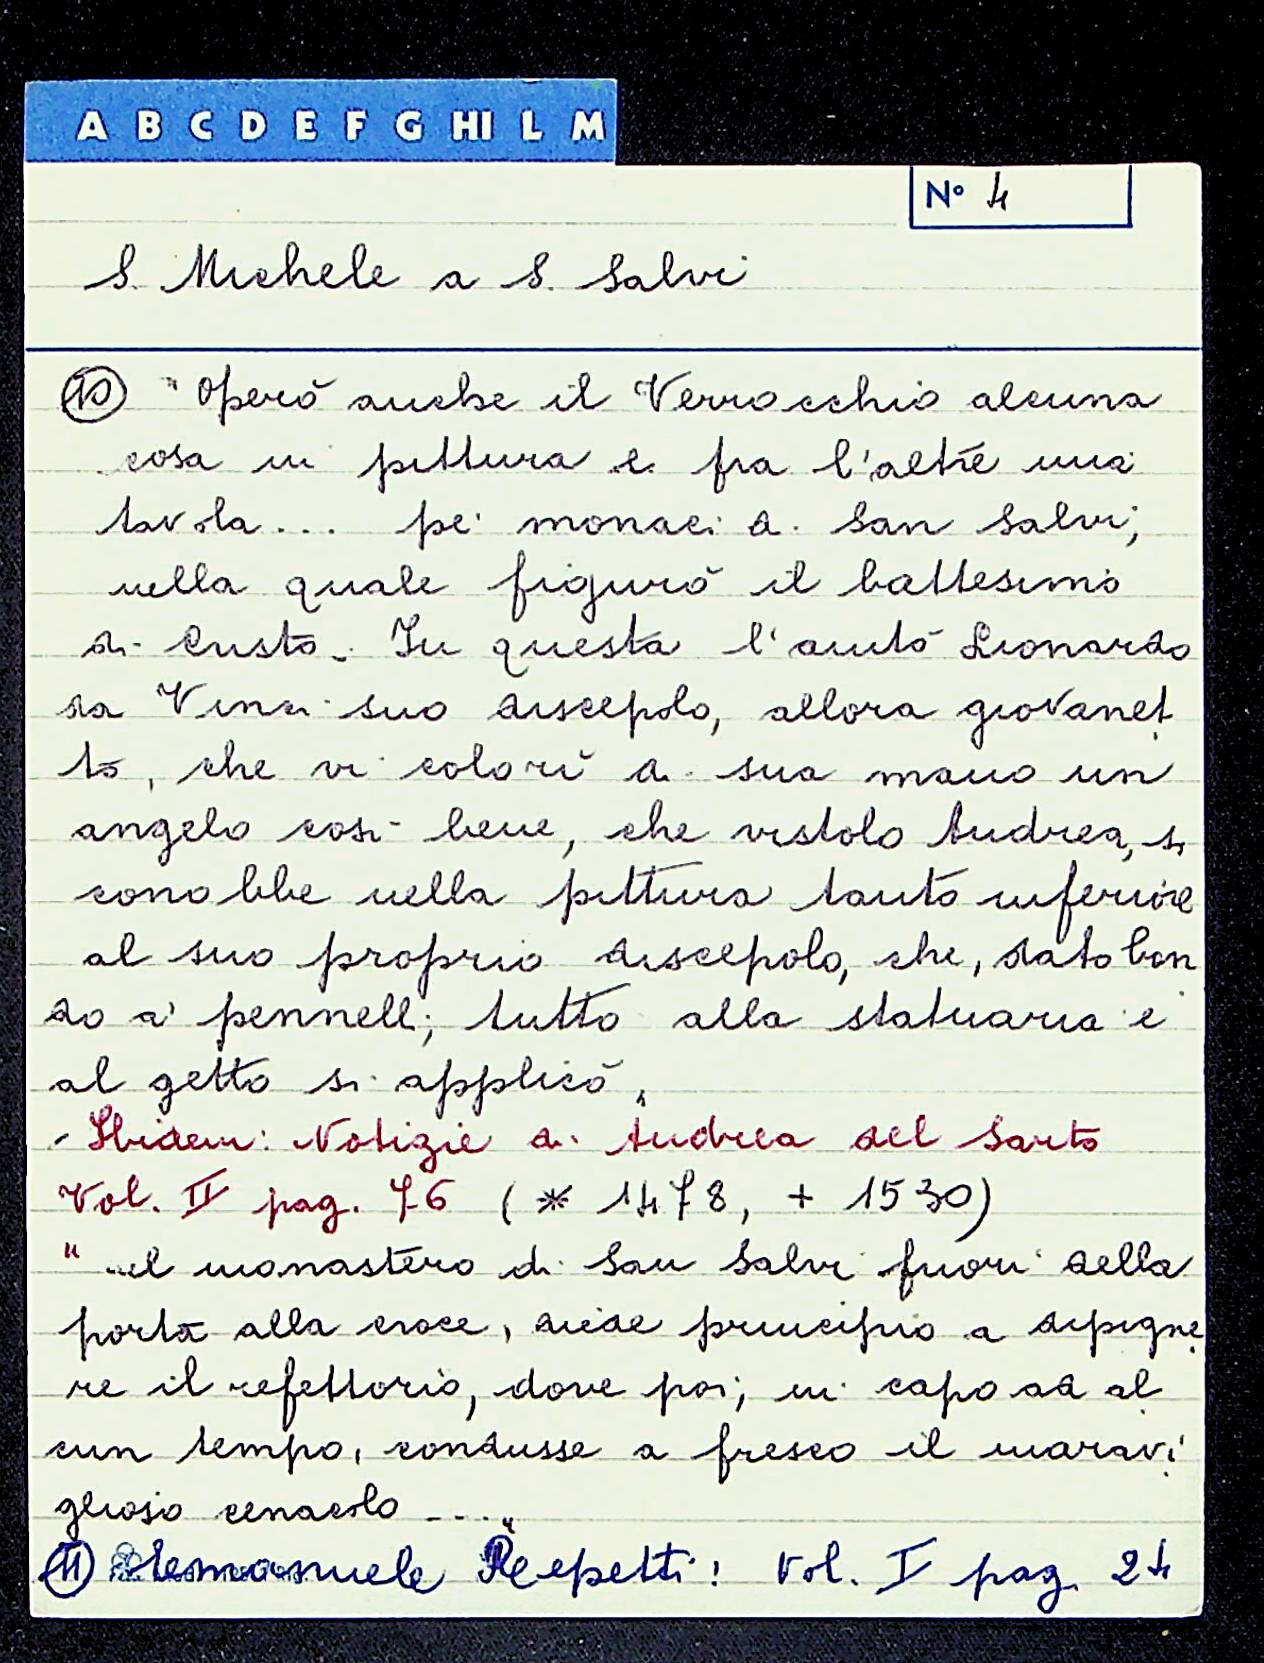 A B C D E F G HI L M
N° 4
S. Michele a S. Salvi
10 "Operò anche il Verrocchio alcuna
cosa in pittura e fra l'altre una
tavola... pei monaci di San Salvi,
nella quale figurò il battesimo
di Cristo. In questa l'aiutò Lionardo
da Vinci suo discepolo, allora giovanet
to, che vi colorì di sua mano un
angelo così bene, che vistolo Andrea, si
conobbe nella pittura tanto inferiore
al suo proprio discepolo, che, dato ban
do a' pennelli, tutto alla statuaria e
al getto si applicò"
- Ibidem: Notizie di Andrea del Sarto
Vol. II pag. 76 (* 1478, + 1530)
" ..nel monastero di San Salvi fuori della
porta alla croce, diede principio a dipigne
re il refettorio, dove poi, in capo ad al
cun tempo, condusse a fresco il maravi
glioso cenacolo ...."
11 Emanuele Repetti: Vol. I pag. 24